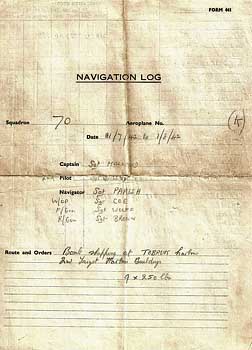 FORM 441
NAVIGATION LOG
K
Squadron 70 Aeroplane No.
Date 31/7/42 to 1/8/42
Captain Sgt
Pilot Sgt
Navigator Sgt PARISH
W/OP Sgt COE
F/Gun Sgt
R/Gun Sgt BROWN
Route and Orders Bomb shipping at TOBRUK harbour
2nd Target Martime Buildings
9 x 250 lbs